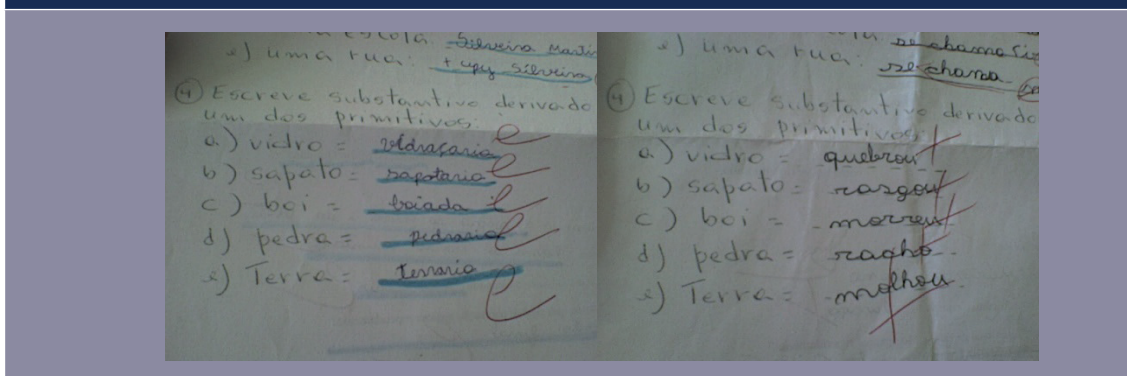 escola Silveira Martin
e) uma rua: Silveira
4 Escreve substantivo derivado
um dos primitivos:
a) vidro = vidraçaria
b) sapato: sapataria
c) boi = boiada
d) pedra = pedraria
e) Terra = terraria
se chama
e) uma rua: se chama
4 Escreve substantivo derivado
um dos primitivos:
a) vidro = quebrou
b) sapato = rasgou
c) boi = morreu
d) pedra =
e) Terra = molhou